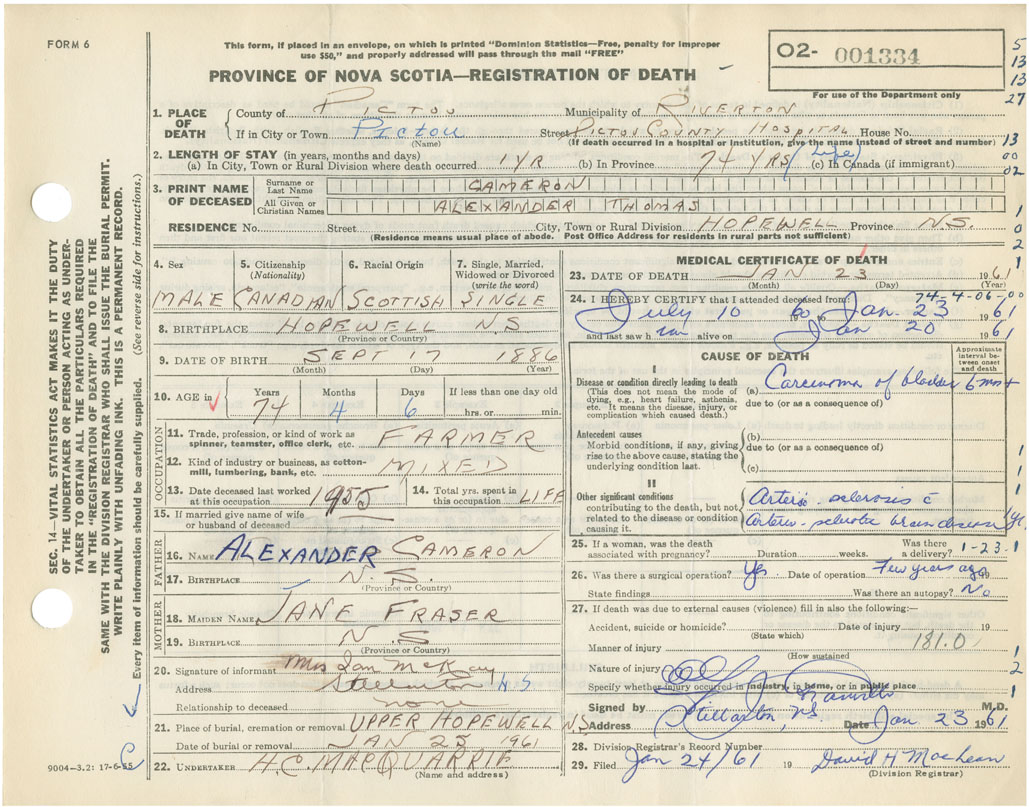 FORM 6
This form, if placed in an envelope, on which is printed "Dominion Statistics—Free, penalty for improper
use $50," and properly addressed will pass through the mail "FREE"
PROVINCE OF NOVA SCOTIA—REGISTRATION OF DEATH
02- 001334
For use of the Department only
5
13
13
27
1. PLACE OF DEATH
County of PICTOU Municipality of RIVERTON
If in City or Town Pictou Street PICTOU COUNTY HOSPITAL House No.
(Name) (If death occurred in a hospital or institution, give the name instead of street and number)
13
2. LENGTH OF STAY (in years, months and days)
(a) In City, Town or Rural Division where death occurred 1 YR (b) In Province 74 YRS (life) (c) In Canada (if immigrant)
00
02
3. PRINT NAME OF DECEASED
Surname or Last Name CAMERON
All Given or Christian Names ALEXANDER THOMAS
1
RESIDENCE No. Street City, Town or Rural Division HOPEWELL Province N.S.
0
(Residence means usual place of abode. Post Office Address for residents in rural parts not sufficient)
2
4. Sex MALE
5. Citizenship (Nationality) CANADIAN
6. Racial Origin SCOTTISH
7. Single, Married, Widowed or Divorced (write the word) SINGLE
8. BIRTHPLACE HOPEWELL N.S
(Province or Country)
9. DATE OF BIRTH SEPT 17 1886
(Month) (Day) (Year)
10. AGE in
Years Months Days If less than one day old
74 4 6 hrs. or min.
OCCUPATION
11. Trade, profession, or kind of work as spinner, teamster, office clerk, etc. FARMER
12. Kind of industry or business, as cotton-mill, lumbering, bank, etc. MIXED
13. Date deceased last worked at this occupation 1955
14. Total yrs. spent in this occupation LIFE
15. If married give name of wife or husband of deceased
FATHER
16. NAME ALEXANDER CAMERON
17. BIRTHPLACE N.S.
(Province or Country)
MOTHER
18. MAIDEN NAME JANE FRASER
19. BIRTHPLACE N.S
(Province or Country)
20. Signature of informant Mrs Ian McKay
Address Stellarton N.S
Relationship to deceased none
21. Place of burial, cremation or removal UPPER HOPEWELL N.S
Date of burial or removal JAN 25 1961
22. UNDERTAKER H.C. MACQUARRIE
(Name and address)
MEDICAL CERTIFICATE OF DEATH
1
23. DATE OF DEATH JAN 23 1961
(Month) (Day) (Year)
74-4-06-00
24. I HEREBY CERTIFY that I attended deceased from:
July 10 to Jan. 23 1961
and last saw him alive on Jan 20 1961
CAUSE OF DEATH
Approximate interval between onset and death
I
Disease or condition directly leading to death
(This does not mean the mode of dying, e.g., heart failure, asthenia, etc. It means the disease, injury, or complication which caused death.)
(a) Carcinoma of bladder 6 mos +
due to (or as a consequence of)
Antecedent causes
Morbid conditions, if any, giving rise to the above cause, stating the underlying condition last.
(b)
due to (or as a consequence of)
(c)
II
Other significant conditions
contributing to the death, but not related to the disease or condition causing it.
Arterio-sclerosis c̄
Arterio-sclerotic brain disease
25. If a woman, was the death associated with pregnancy? Duration weeks. Was there a delivery? 1-23-1
26. Was there a surgical operation? Yes Date of operation Few years ago 19
State findings Was there an autopsy? No
27. If death was due to external causes (violence) fill in also the following:—
Accident, suicide or homicide? Date of injury 19
(State which)
Manner of injury 181.0
(How sustained
Nature of injury
Specify whether injury occurred in industry, in home, or in public place
Signed by M.D.
Address Stellarton, NS Date Jan 23 1961
28. Division Registrar's Record Number
29. Filed Jan 24/61 19 David H Maclean
(Division Registrar)
SEC. 14—VITAL STATISTICS ACT MAKES IT THE DUTY
OF THE UNDERTAKER OR PERSON ACTING AS UNDER-
TAKER TO OBTAIN ALL THE PARTICULARS REQUIRED
IN THE "REGISTRATION OF DEATH" AND TO FILE THE
SAME WITH THE DIVISION REGISTRAR WHO SHALL ISSUE THE BURIAL PERMIT.
WRITE PLAINLY WITH UNFADING INK. THIS IS A PERMANENT RECORD.
Every item of information should be carefully supplied. (See reverse side for instructions.)
9004-3.2: 17-6-55